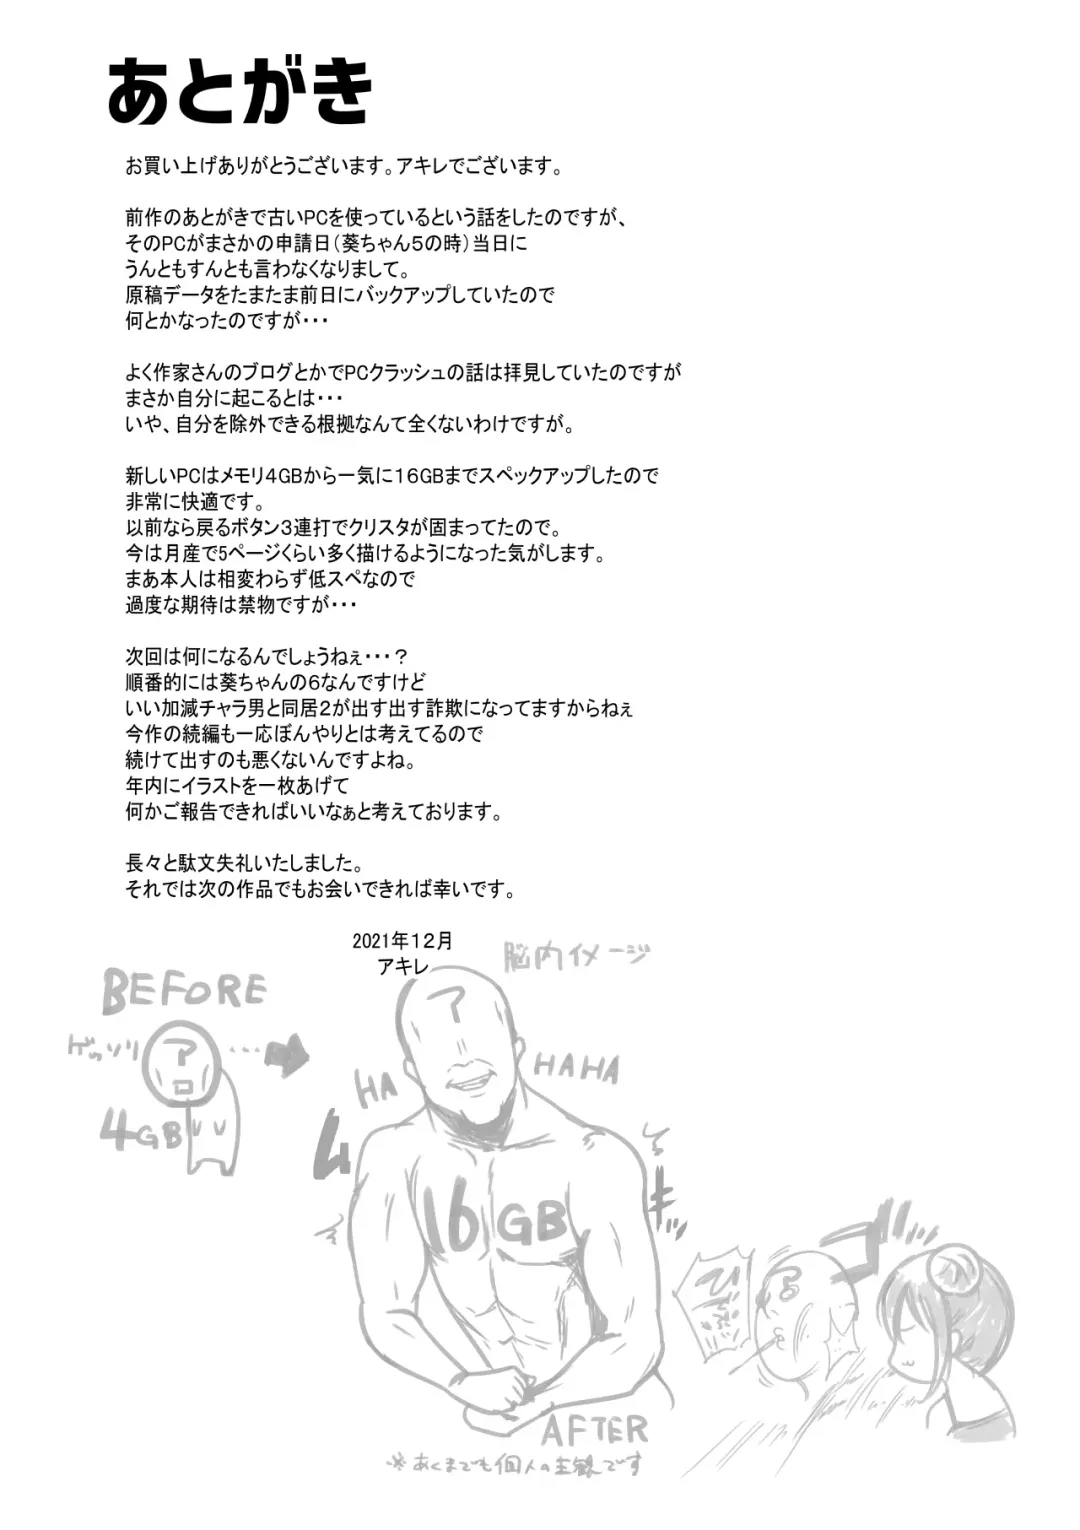 あとがき
お買い上げありがとうございます。アキレでございます。
前作のあとがきで古いPCを使っているという話をしたのですが、
そのPCがまさかの申請日（葵ちゃん５の時）当日に
うんともすんとも言わなくなりまして。
原稿データをたまたま前日にバックアップしていたので
何とかなったのですが・・・
よく作家さんのブログとかでPCクラッシュの話は拝見していたのですが
まさか自分に起こるとは・・・
いや、自分を除外できる根拠なんて全くないわけですが。
新しいPCはメモリ４GBから一気に１６GBまでスペックアップしたので
非常に快適です。
以前なら戻るボタン３連打でクリスタが固まってたので。
今は月産で5ページくらい多く描けるようになった気がします。
まあ本人は相変わらず低スペなので
過度な期待は禁物ですが・・・
次回は何になるんでしょうねぇ・・・？
順番的には葵ちゃんの６なんですけど
いい加減チャラ男と同居２が出す出す詐欺になってますからねぇ
今作の続編も一応ぼんやりとは考えてるので
続けて出すのも悪くないんですよね。
年内にイラストを一枚あげて
何かご報告できればいいなぁと考えております。
長々と駄文失礼いたしました。
それでは次の作品でもお会いできれば幸いです。
2021年１２月
アキレ
脳内イメージ
BEFORE
ゲッソリ
ア
4GB
ア
HA
HAHA
ム
キッ
16GB
ア
AFTER
※あくまでも個人の主観です